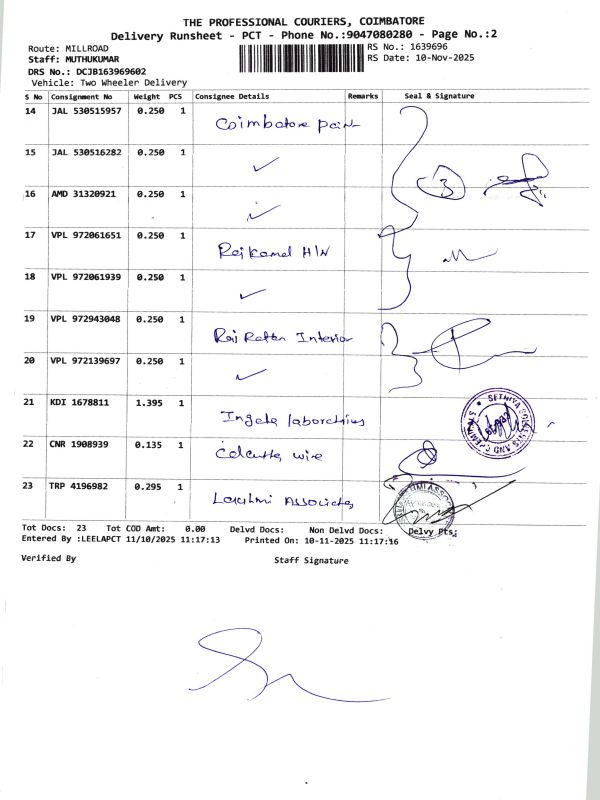 THE PROFESSIONAL COURIERS, COIMBATORE
Delivery Runsheet - PCT - Phone No.:9047080280 - Page No.:2
Route: MILLROAD
RS No.: 1639696
Staff: MUTHUKUMAR
RS Date: 10-Nov-2025
DRS No.: DCJB163969602
Vehicle: Two Wheeler Delivery
S No Consignment No Weight PCS Consignee Details Remarks Seal & Signature
14 JAL 530515957 0.250 1 Coimbatore
15 JAL 530516282 0.250 1 ✓
16 AMD 31320921 0.250 1 ✓
17 VPL 972061651 0.250 1 Rajkamal H/W
18 VPL 972061939 0.250 1 ✓
19 VPL 972943048 0.250 1 Raj Rattan Interior
20 VPL 972139697 0.250 1 ✓
21 KDI 1678811 1.395 1
22 CNR 1908939 0.135 1 Calcutta wire
23 TRP 4196982 0.295 1 Lakshmi Associates
Tot Docs: 23 Tot COD Amt: 0.00 Delvd Docs: Non Delvd Docs: Delvy Pts:
Entered By :LEELAPCT 11/10/2025 11:17:13 Printed On: 10-11-2025 11:17:16
Verified By Staff Signature